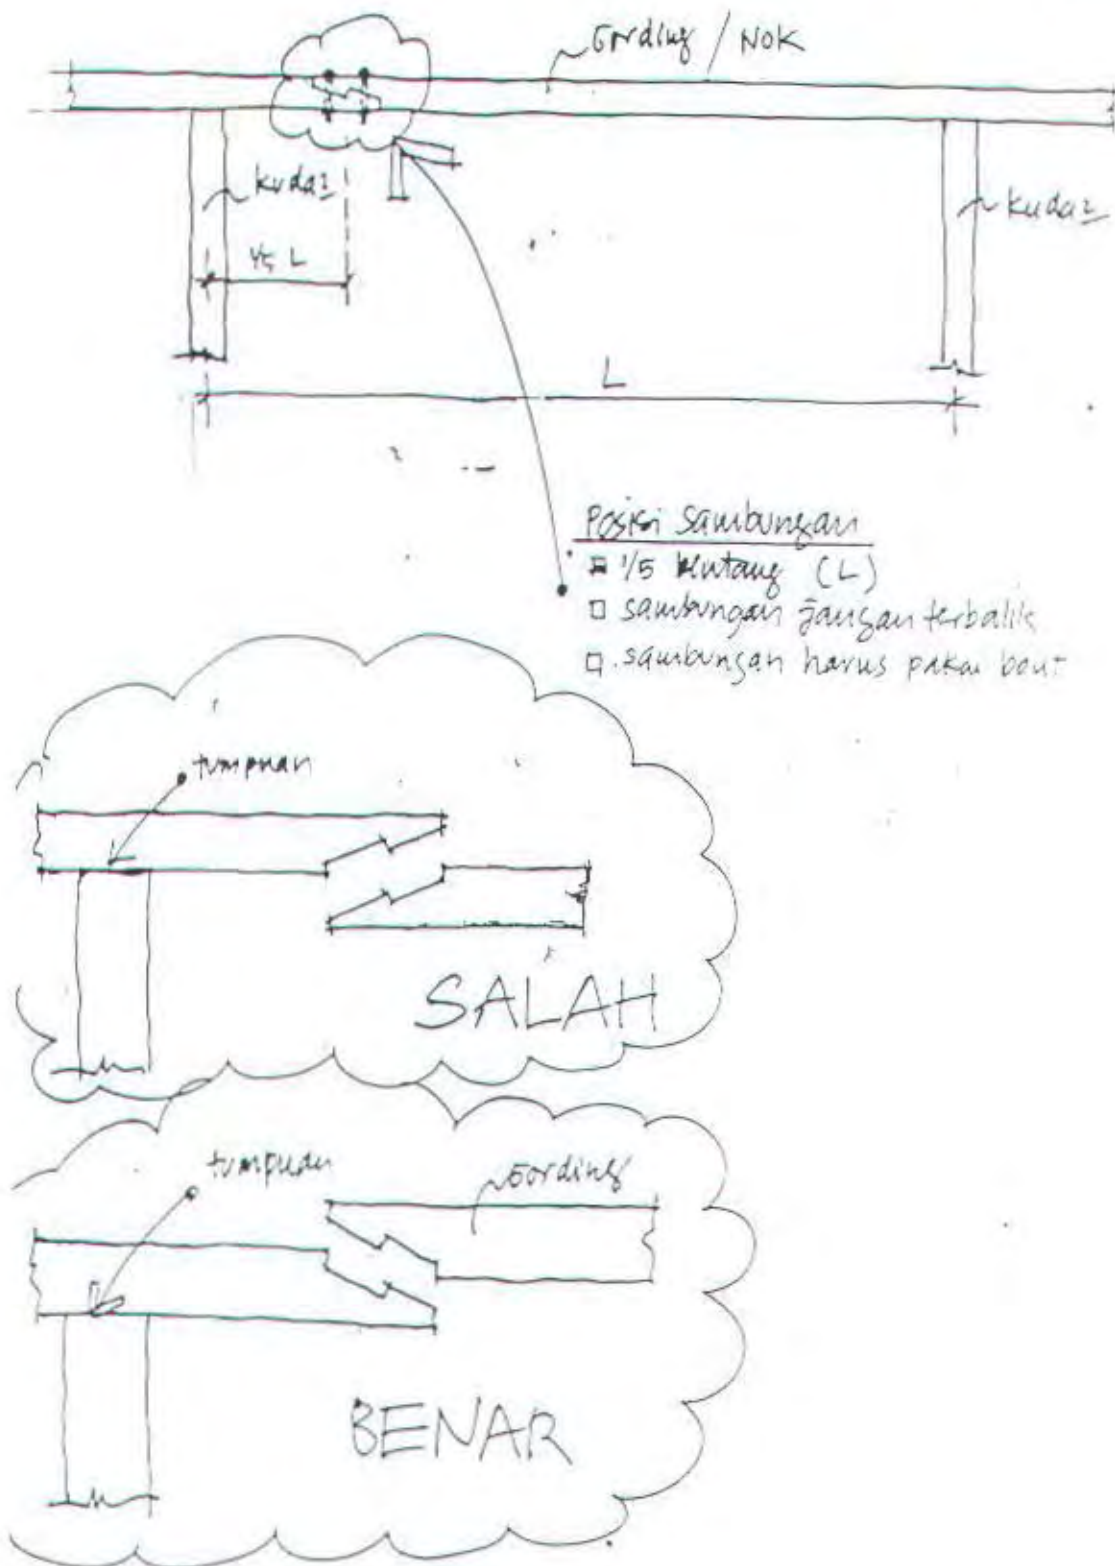 Gording / NOK
kuda2
kuda2
1/5 L
L
Posisi sambungan
1/5 bentang (L)
sambungan jangan terbalik
sambungan harus pakai bout
tumpuan
SALAH
tumpuan
Gording
BENAR